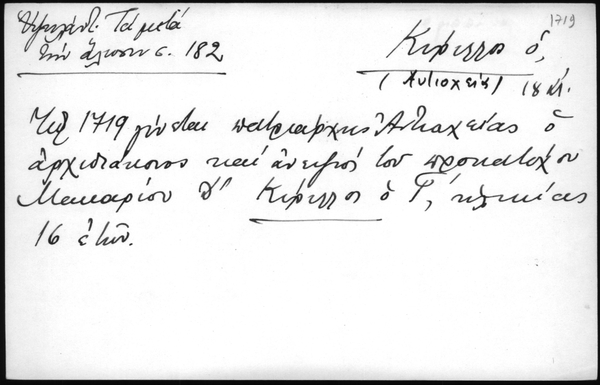 1719
Ὑψηλάντ. Τὰ μετὰ
τὴν ἅλωσιν σ. 182
Κύριλλος ὁ,
(Ἀντιοχείας) 18 αἰ.
Τῷ 1719 γίνεται πατριάρχης Ἀντιοχείας ὁ
ἀρχιδιάκονος καὶ ἀνεψιὸς τοῦ προκατόχου
Μακαρίου Κύριλλος ὁ Γ, ἡλικίας
16 ἐτῶν.